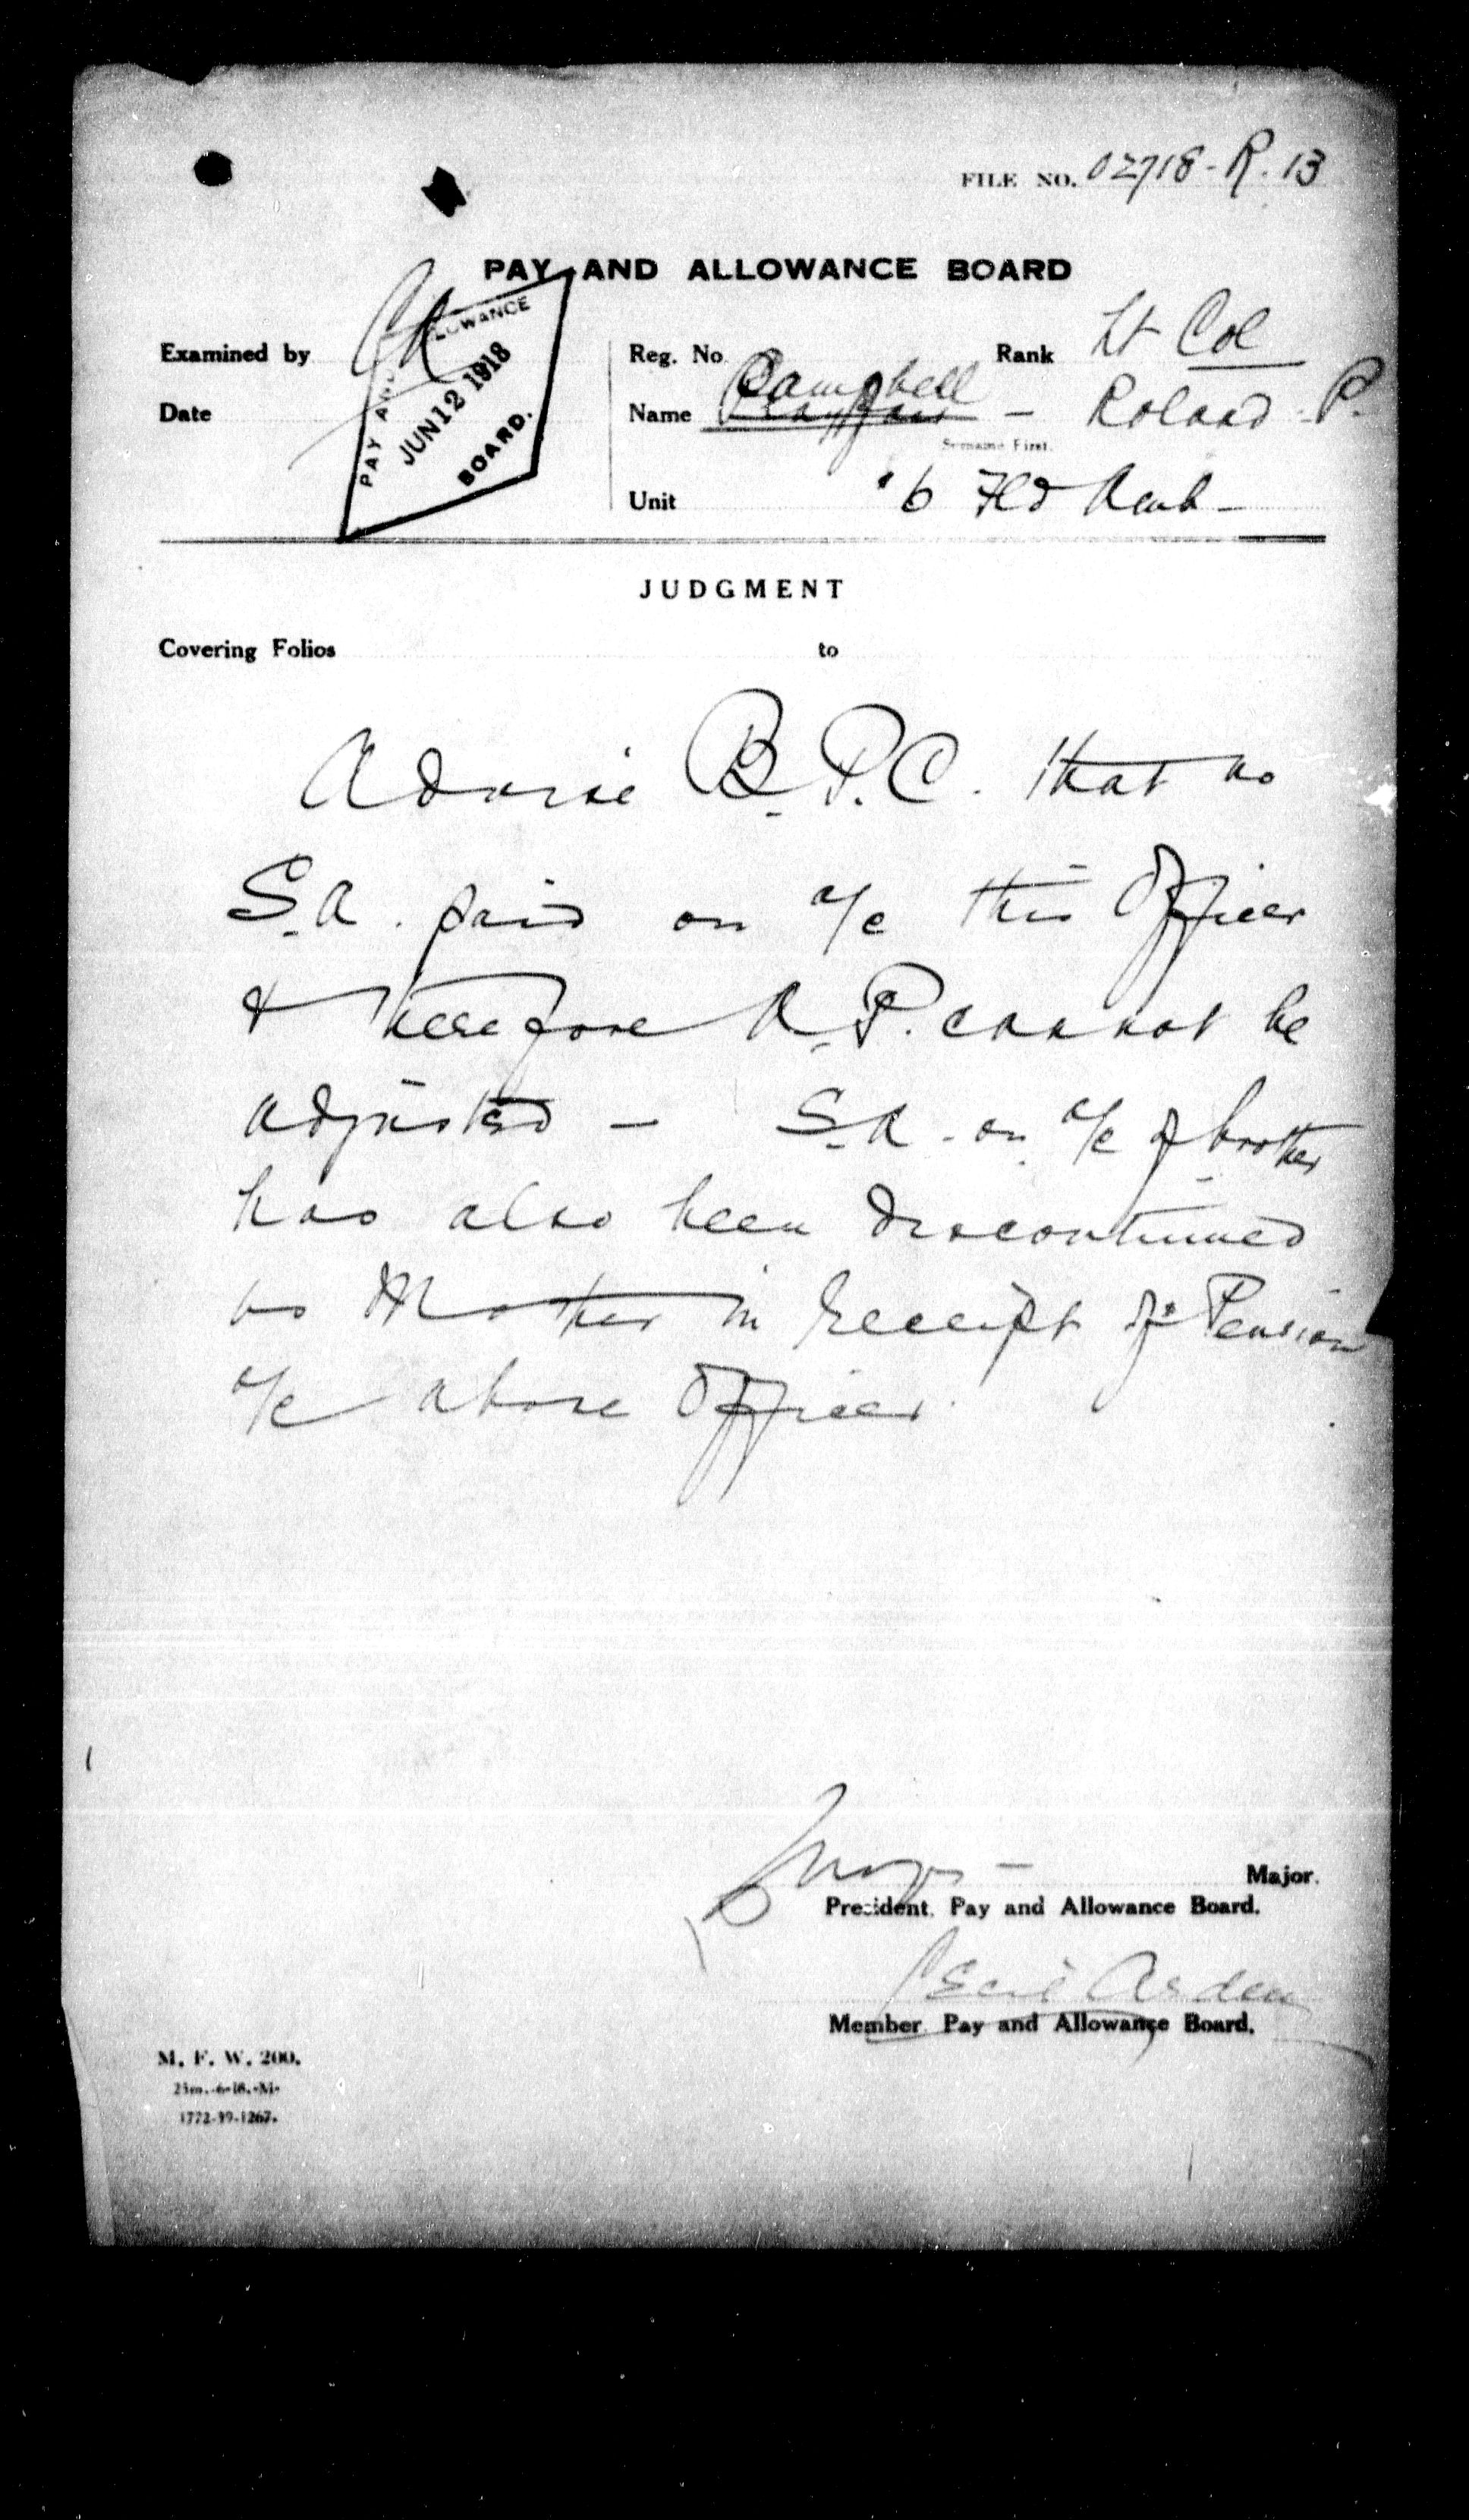 FILE NO. 02718-R.13
PAY AND ALLOWANCE BOARD
Examined by
Reg. No.
Rank Lt Col
PAY AND ALLOWANCE
JUN 12 1918
BOARD.
Date
Name Campbell - Roland P.
Surname First.
Unit 6 Fld Amb -
JUDGMENT
Covering Folios to
Advise B.P.C. that no
S.A. paid on a/c this Officer
& therefore A.P. cannot be
adjusted - S.A. on a/c of brother
has also been discontinued
as Mother in receipt of Pension
a/c above Officer.
Major.
President, Pay and Allowance Board.
Cecil Arden
Member Pay and Allowance Board.
M. F. W. 200.
25m.-6-18.-M-
1772-39-1267.